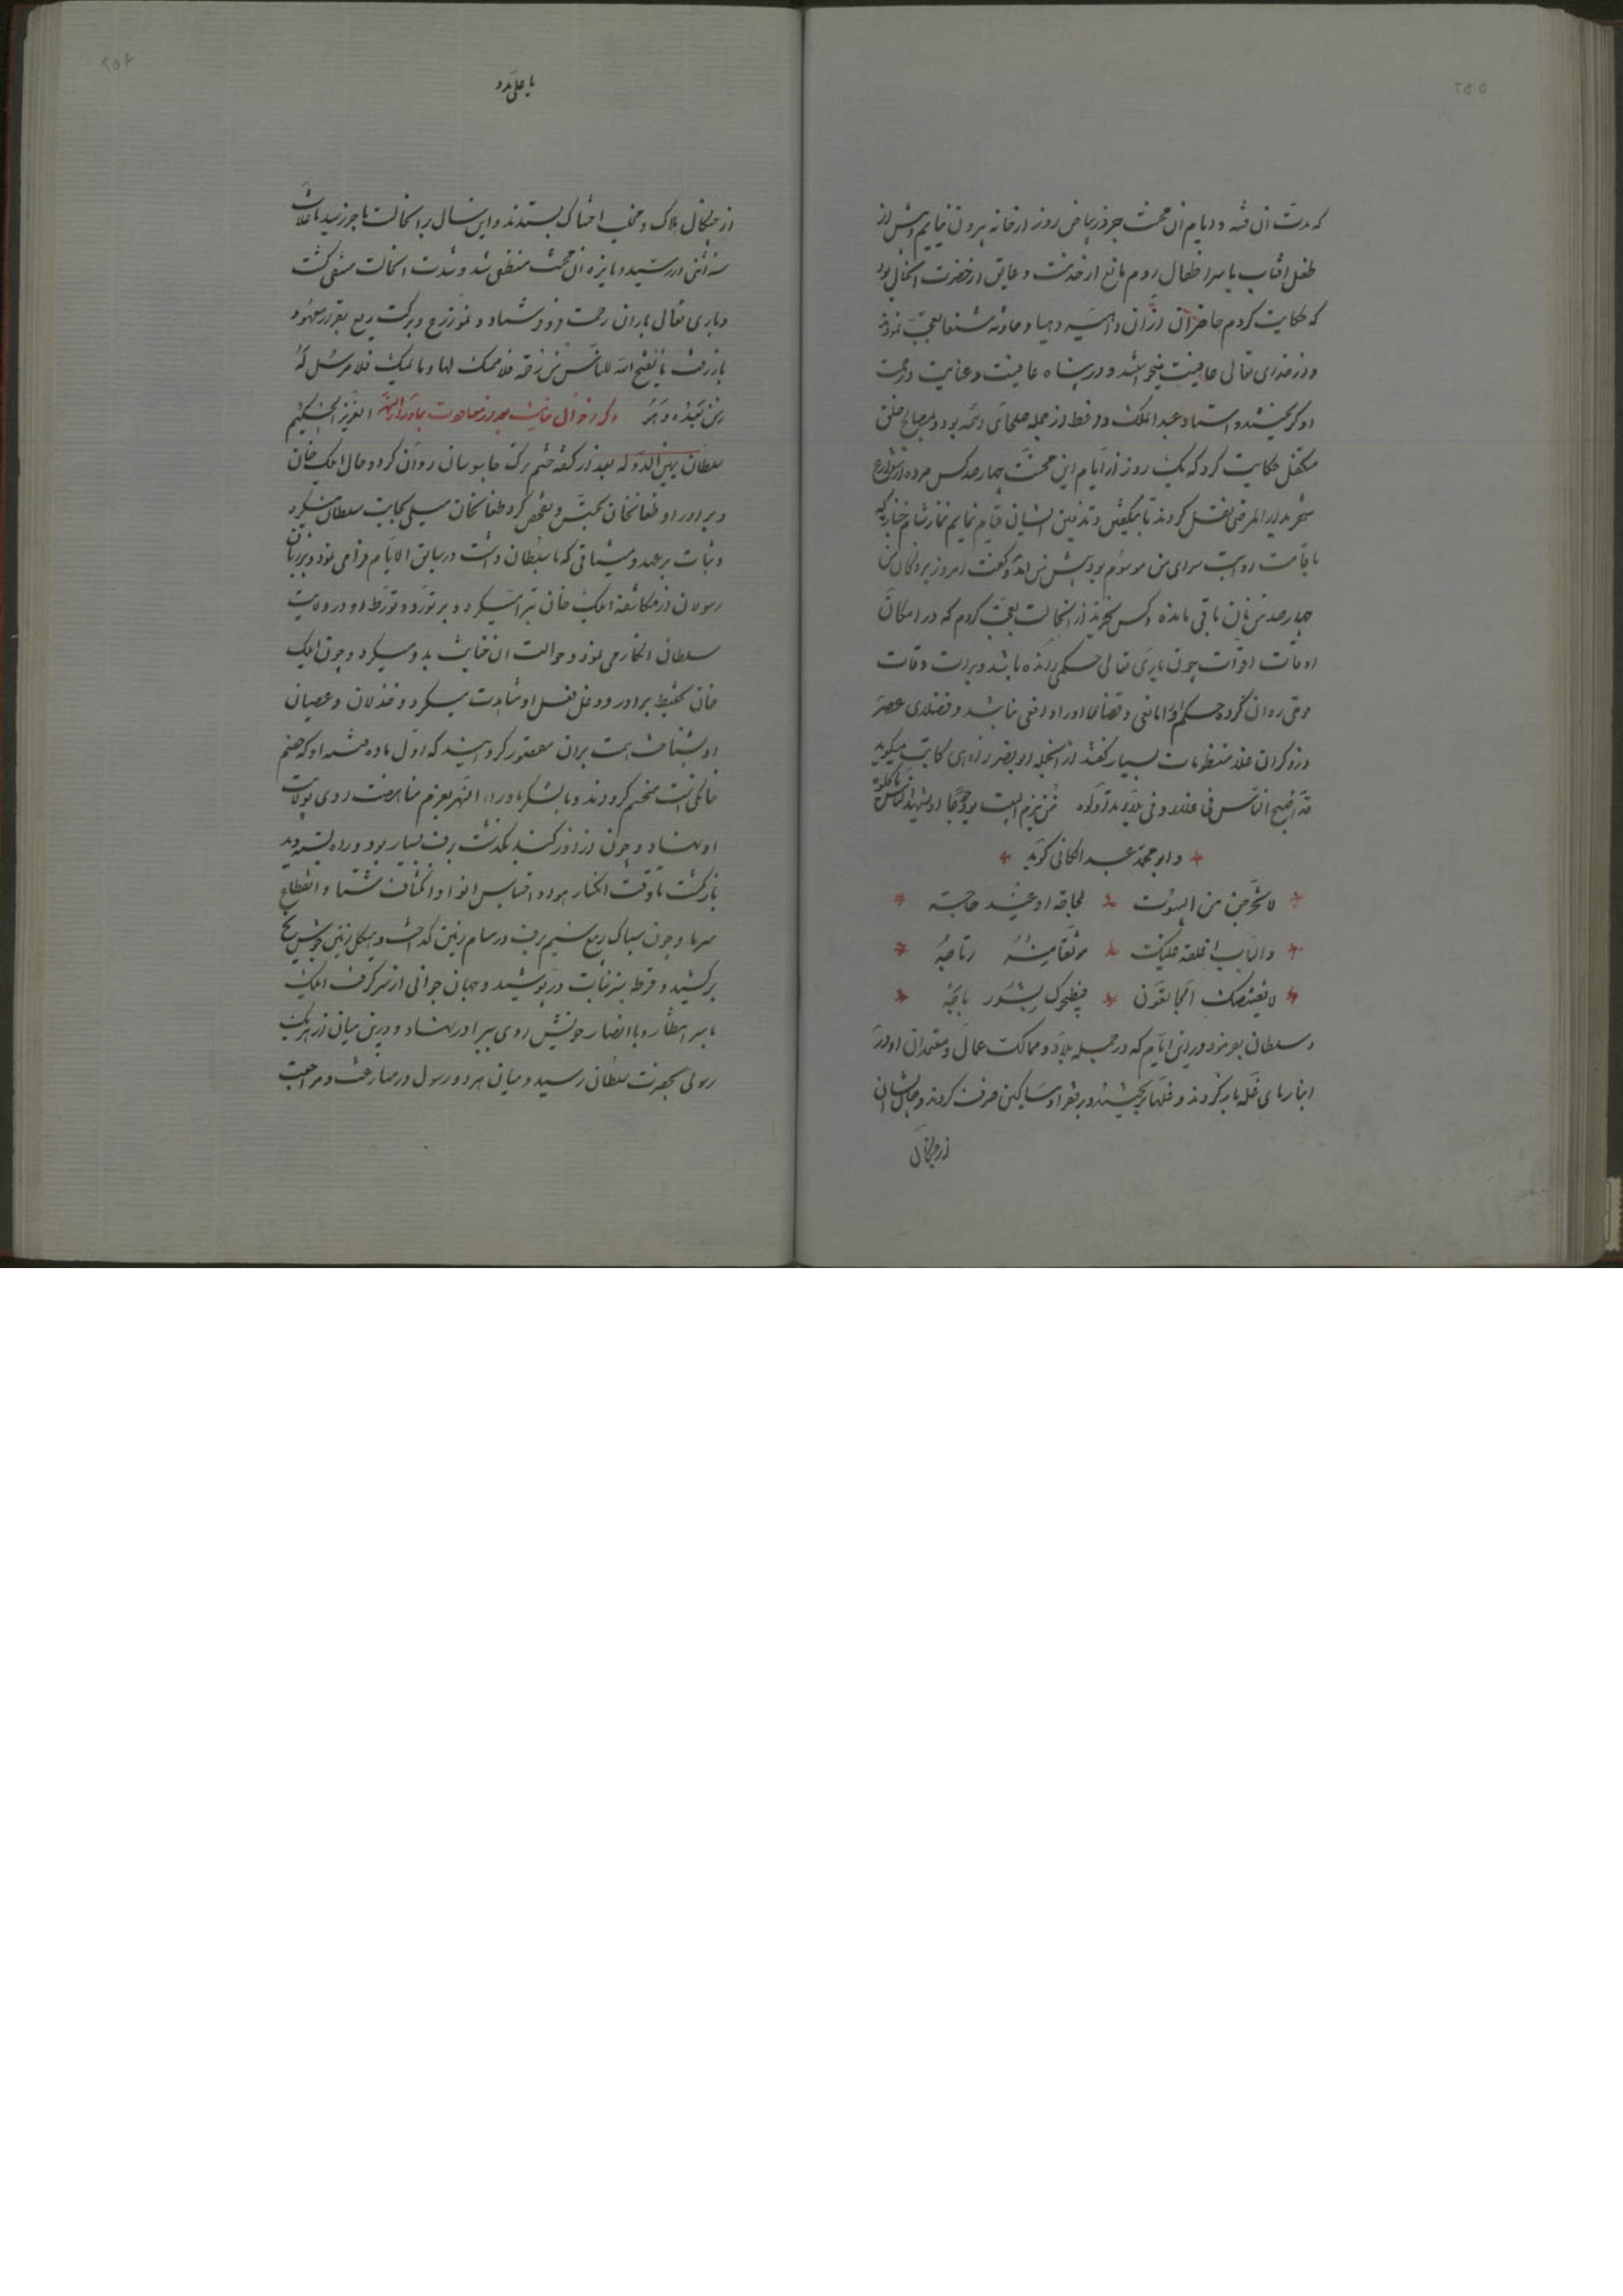 ۲۵۵
که مدت آن فتنه و ایام آن محنت جز در بیاض روز از خانه بیرون نیایم و پیش از
طفل آفتاب با سر اطفال روم مانع از خدمت و عایق از حضرت آنحال بود
که حکایت کردم حاضران از آن داهیه دهیا و حادثه شنعا تعجب نمودند
و از خدای تعالی عافیت میخواستند و در پناه عافیت و عنایت و رحمت
او گریختند و استاد عبد الملک واعظ از جمله صلحای ائمه بود و بمصالح خلق
متکفل حکایت کرد که یک روز از ایام این محنت چهارصد کس مرده از شوارع
شهر بدار المرضی نقل کردند تا بتکفین و تدفین ایشان قیام نمایم نماز شام خبازی که
باقامت رواتب سرای من موسوم بود پیش من آمد و گفت امروز بر دکان من
چهارصد من نان باقی مانده و کس نخرید از آنحالت تعجب کردم که در امکان
اوقات اقوات چون باری تعالی حکمی رانده باشد و برات وفات
قومی روان کرده حکم او را مانعی و قضای او را دافعی نباشد و فضلای عصر
در ذکر آن غلا منظومات بسیار گفتند از آنجمله ابو نصر راوی کاتب میگوید
قد اصبح الناس فی غلاء و فی بلاء تداولوه من یلزم البیت یود جوعا او یشهد الناس یاکلوه
و ابو محمد عبد الکافی گوید
لا تخرجن من البیوت لحاجة او غیر حاجة
والباب اغلقه علیک موثقا منه رتاجه
لا یقتنصک الجائعون فیطبخوک بشورباجه
و سلطان بفرمود در این ایام که در جمله بلاد و ممالک عمال و معتمدان او در
انبارهای غله باز کردند و غلها بریختند و بر فقرا و مساکین صرف کردند و جان ایشان
از چنگال
۲۵۶
یا علی مدد
از چنگال هلاک و مخلب احتناک بستدند و این سال بر آنحالت بآخر رسید تا غلات
سنه اثنی در رسید و نایره آن محنت منطفی شد و شدت آنحالت منتفی گشت
و باری تعالی باران رحمت فرو فرستاد و نمو زرع و برکت ریع بقرار معهود
باز رفت ما یفتح الله للناس من رحمة فلا ممسک لها و ما یمسک فلا مرسل له
من بعده و هو ذکر احوال خانیه بعد از معاودت بماوراء النهر العزیز الحکیم
سلطان یمین الدوله بعد از کشف حشم ترک جاسوسان روان کرد و حال ایلک خان
و برادر او طغانخان تجسس و تفحص کرد طغانخان میلی بجانب سلطان میکرد
و ثبات بر عهد و میثاقی که با سلطان داشت در سابق الایام فرا می نمود و بر زبان
رسولان از مکاشفه ایلک خان تبرا میکرد و بر تورد و تورط او در ولایت
سلطان انکار می نمود و حوالت آن خنایت بدو میکرد و چون ایلک
خان تخلیط برادر و دغل فعل او مشاهدت میکرد و خذلان و عصیان
او بشناخت همت بران مقصور گردانید که اول ماده فتنه او که خصم
خانگی است منحسم گرداند و با لشکر ماوراء النهر بعزم مناهضت روی بولایت
او نهاد و چون از اوزکند بگذشت برف بسیار بود و راه بسته دید
بازگشت تا وقت انحسار برد و اقتباس انوا و انکشاف شتا و انقطاع
سرما و چون سباک ربیع سیم برف در مسام زمین گداخت و هیکل زمین جوشن یخ
برکشید و قرطه سبز نبات در پوشید و جهان جوانی از سر گرفت ایلک
با سر استظهار و با انصار خویش روی ببرادر نهاد و درین میان از هر یک
رسولی بحضرت سلطان رسید و میان هر دو رسول در منازعت و مراجعت